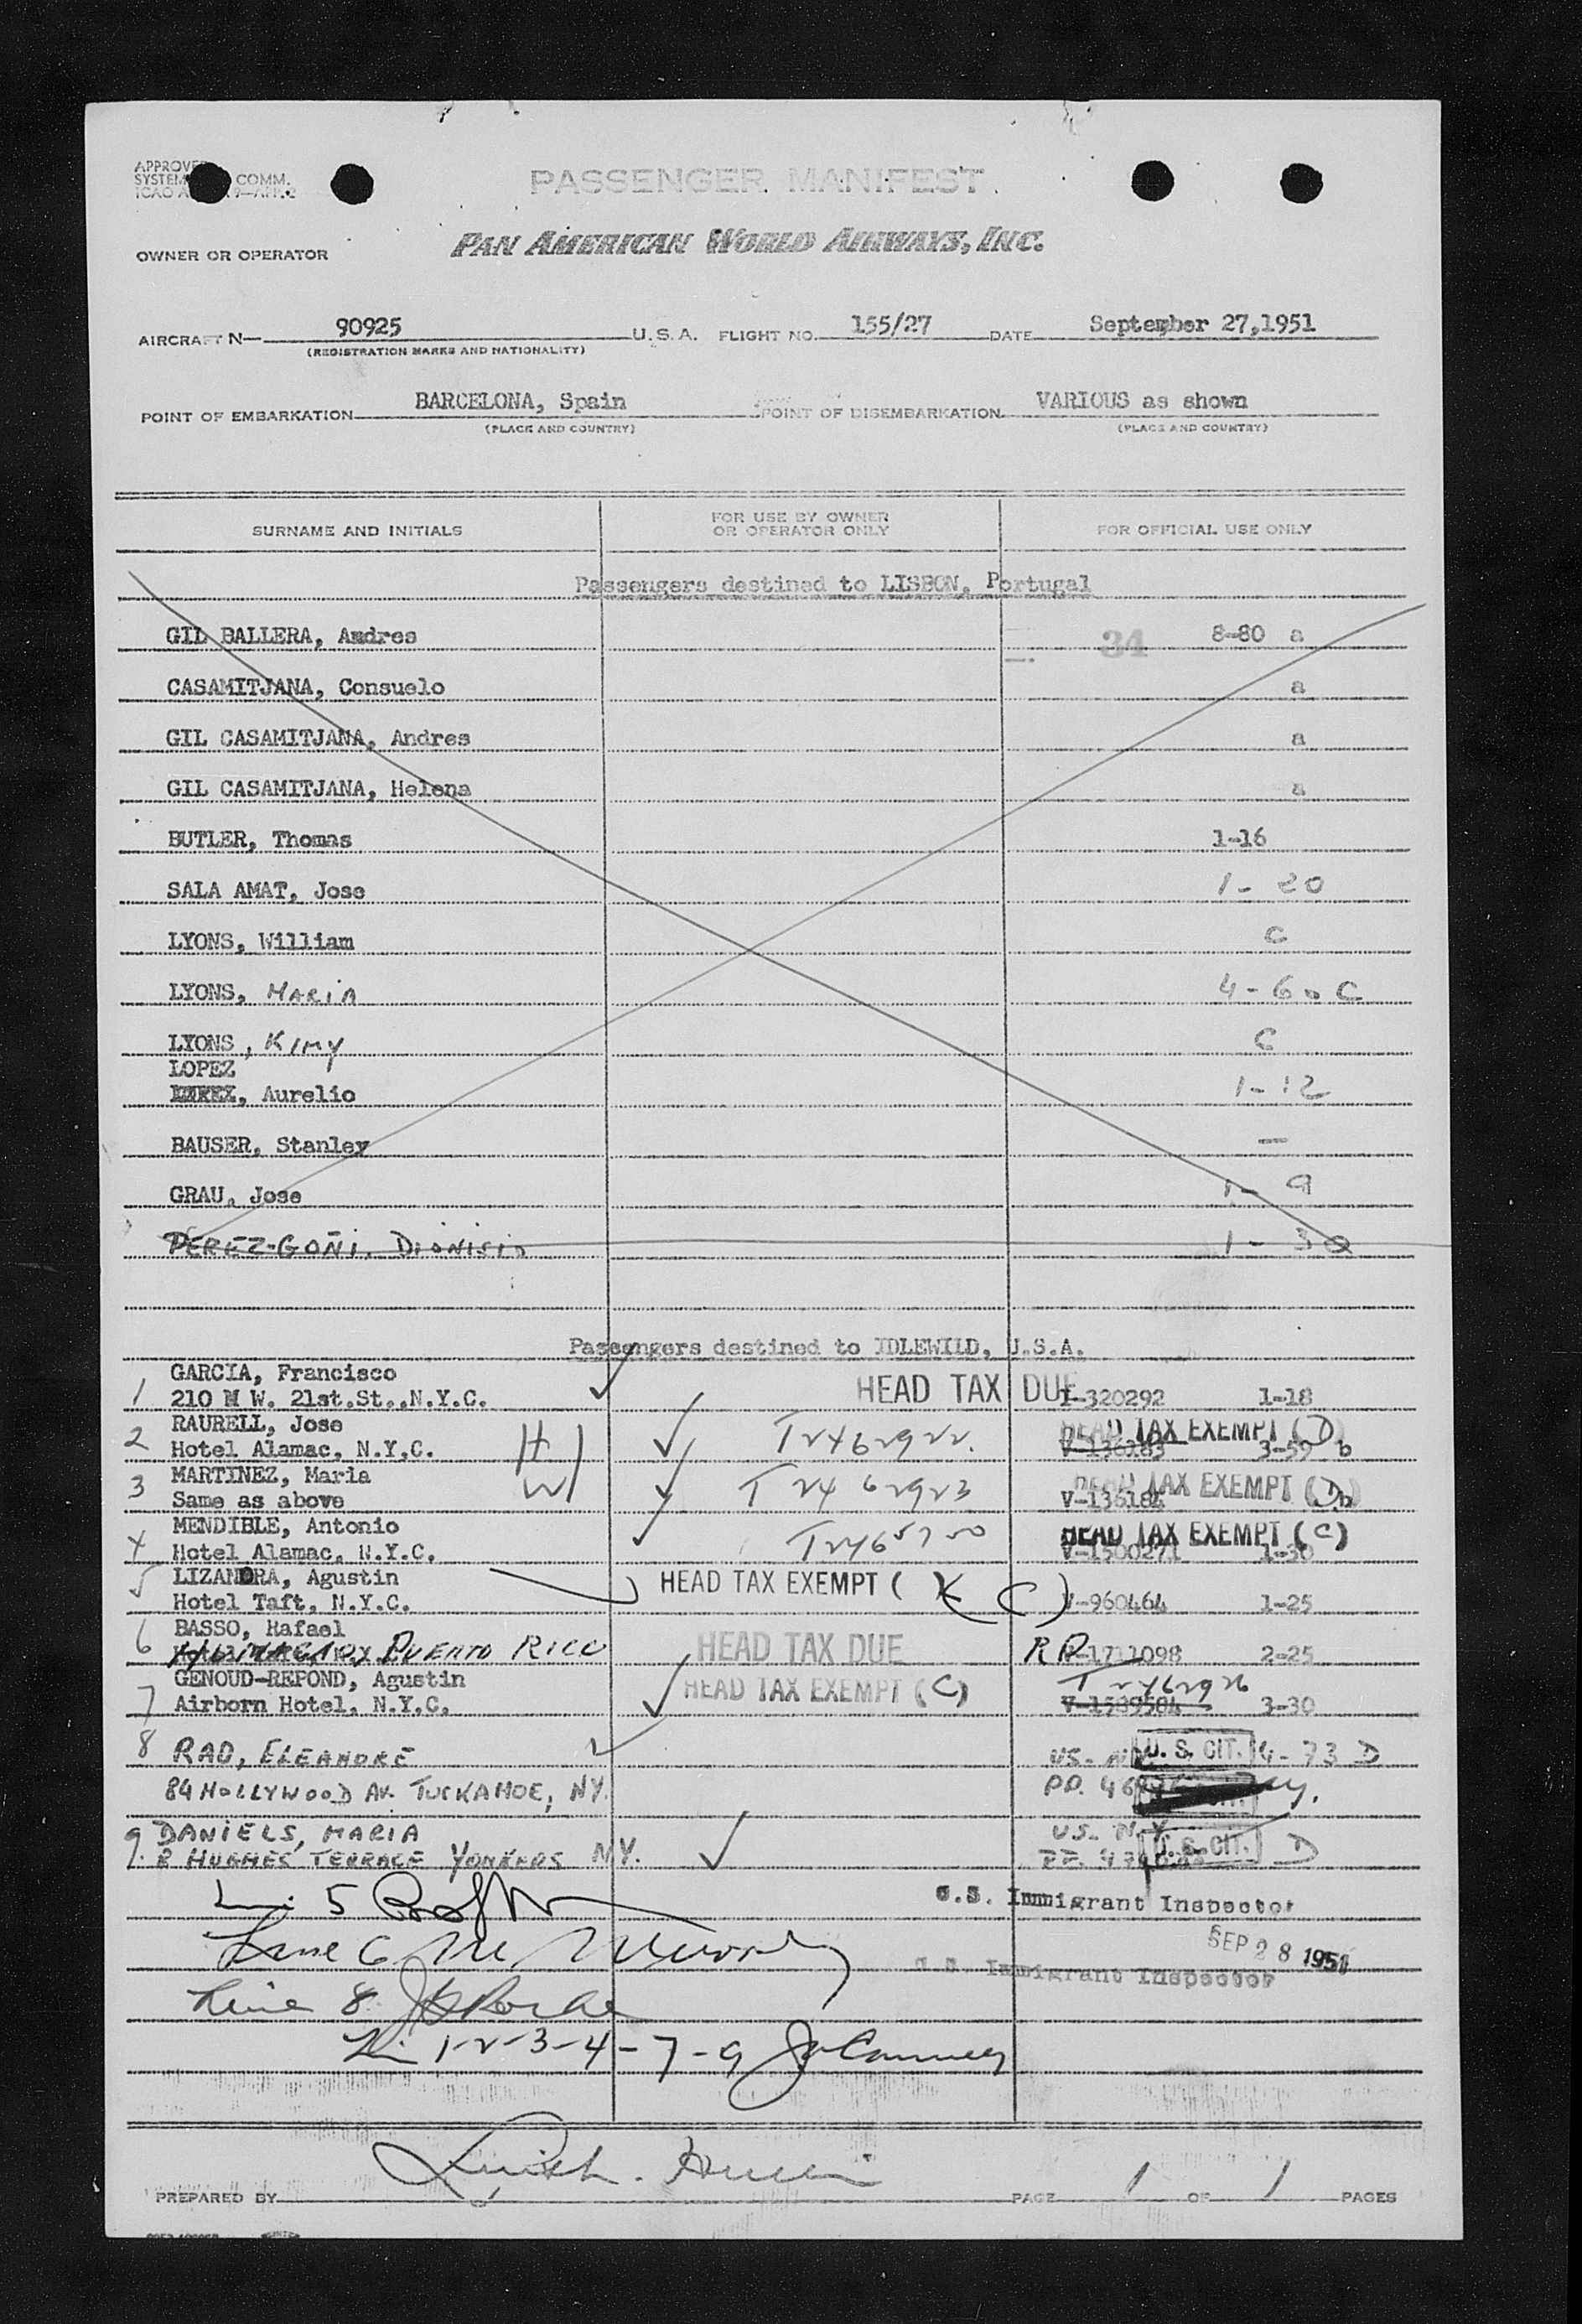 PASSENGER MANIFEST
COMM.
OWNER OR OPERATOR PAN AMERICAN WORLD AIRWAYS, INC.
AIRCRAFT N— 90925 U.S.A. FLIGHT NO. 155/27 DATE September 27,1951
(REGISTRATION MARKS AND NATIONALITY)
POINT OF EMBARKATION BARCELONA, Spain POINT OF DISEMBARKATION VARIOUS as shown
(PLACE AND COUNTRY) (PLACE AND COUNTRY)
SURNAME AND INITIALS FOR USE BY OWNER OR OPERATOR ONLY FOR OFFICIAL USE ONLY
Passengers destined to LISBON, Portugal
GIL BALLERA, Andres 34 8-80 a
CASAMITJANA, Consuelo a
GIL CASAMITJANA, Andres a
GIL CASAMITJANA, Helena a
BUTLER, Thomas 1-16
SALA AMAT, Jose 1-20
LYONS, William C
LYONS, MARIA 4-60 C
LYONS, KIMY C
LOPEZ
Aurelio 1-12
BAUSER, Stanley —
GRAU, Jose 1-9
PEREZ-GOÑI, DIONISIO 1-30
Passengers destined to IDLEWILD, U.S.A.
GARCIA, Francisco
1 210 W. 21st.St.,N.Y.C. HEAD TAX DUE 320292 1-18
RAURELL, Jose HEAD TAX EXEMPT (D)
2 Hotel Alamac, N.Y.C. H V-136183 3-59 b
MARTINEZ, Maria HEAD TAX EXEMPT (D)
3 Same as above W V-136184 b
MENDIBLE, Antonio HEAD TAX EXEMPT (C)
4 Hotel Alamac, N.Y.C. V-1500271 1-30
LIZANDRA, Agustin HEAD TAX EXEMPT ( ) (C)
5 Hotel Taft, N.Y.C. V-960464 1-25
BASSO, Rafael
6 HUMACAO, PUERTO RICO HEAD TAX DUE RP 1711098 2-25
GENOUD-REPOND, Agustin HEAD TAX EXEMPT (C)
7 Airborn Hotel, N.Y.C. V-1589504 3-30
8 RAD, ELEANORE U.S. CIT. 4-73 D
84 HOLLYWOOD AV. TUCKAHOE, NY.
9. DANIELS, MARIA US. N.Y.
8 HUGHES TERRACE YONKERS NY. U.S. CIT. D
U.S. Immigrant Inspector
Line 6
SEP 28 1951
U.S. Immigrant Inspector
Line 8
1-2-3-4-7-9
PREPARED BY PAGE 1 OF 1 PAGES